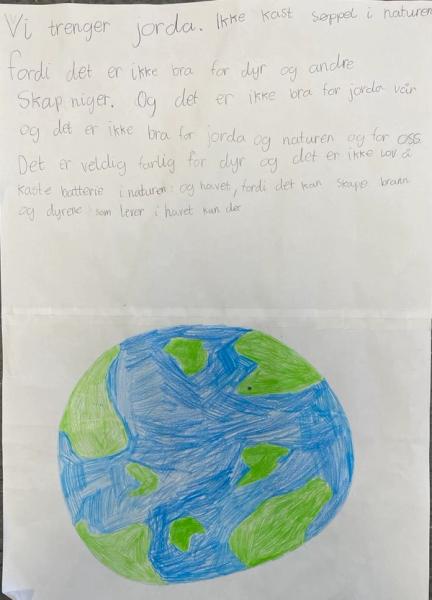 Vi trenger jorda. Ikke kast søppel i naturen
fordi det er ikke bra for dyr og andre
Skapninger. Og det er ikke bra for jorda vår
og det er ikke bra for jorda og naturen og for oss
Det er veldig farlig for dyr og det er ikke lov å
kaste batterie i naturen og havet, fordi det kan skape brann
og dyrene som lever i havet kan dø